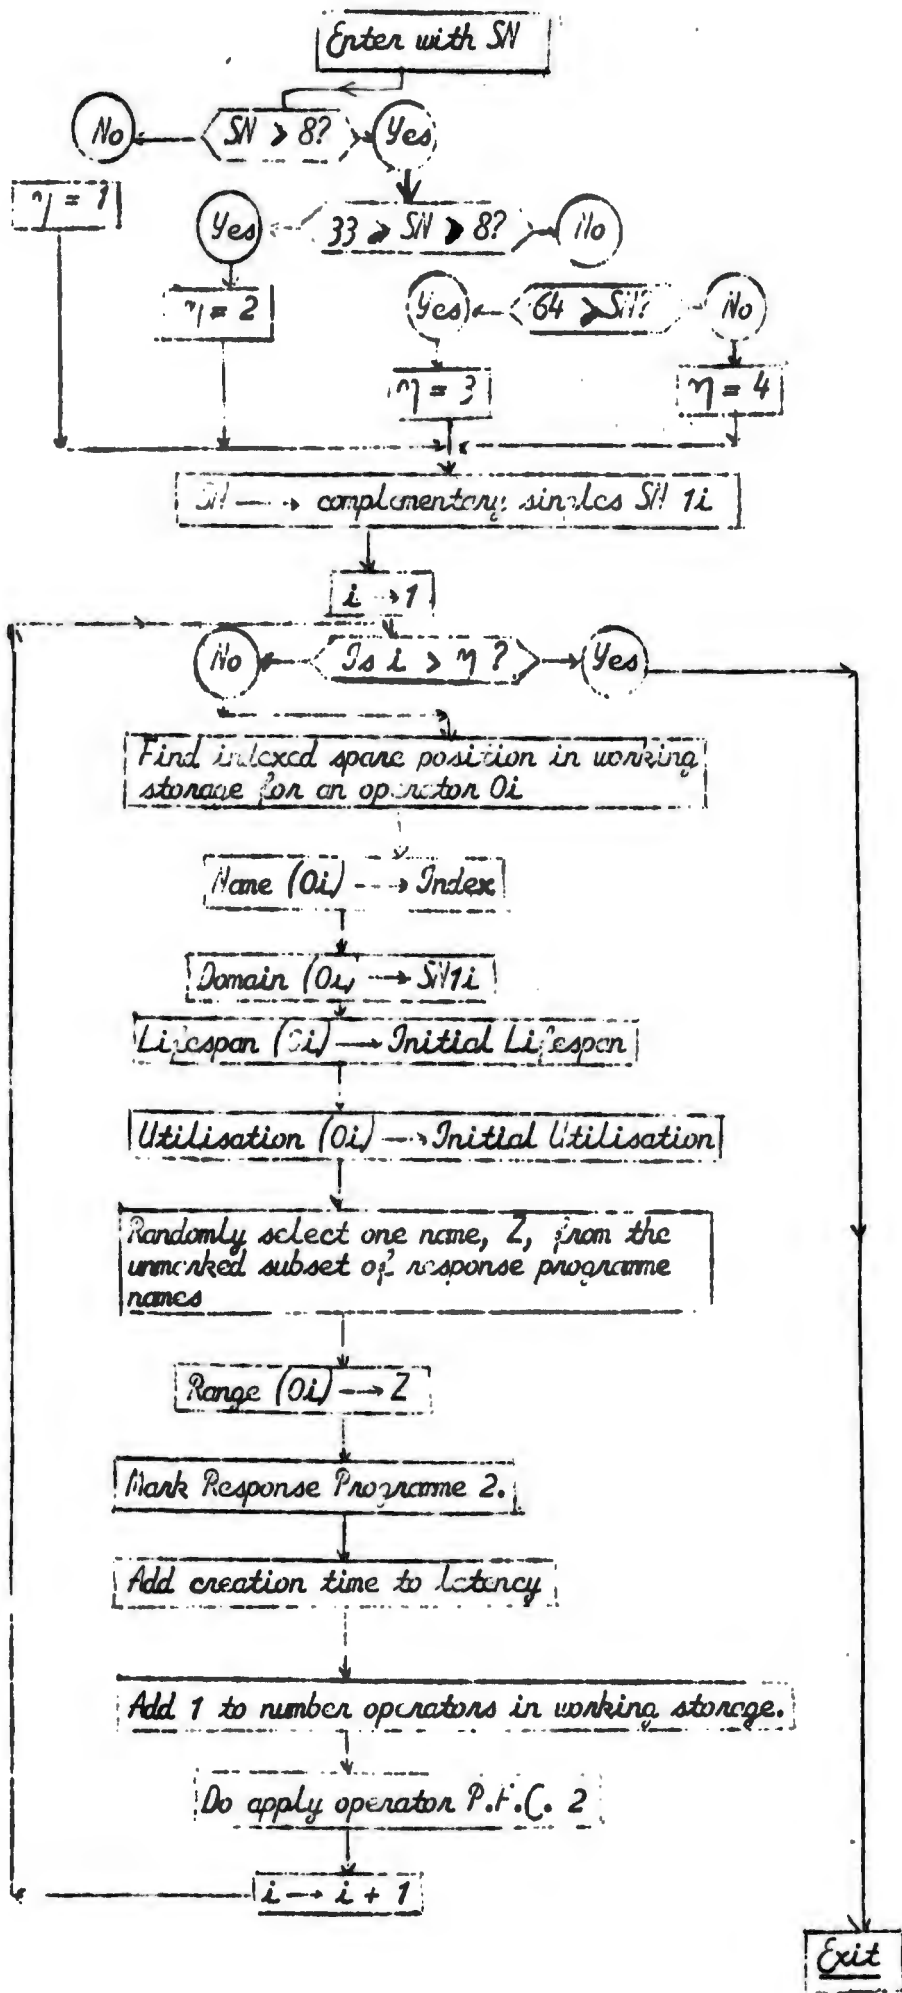 Enter with SN
No
SN > 8?
Yes
η = 1
Yes
33 ⩾ SN > 8?
No
η = 2
Yes
64 ⩾ SN?
No
η = 3
η = 4
SN → complementary singles SN 1i
i → 1
No
Is i > η ?
Yes
Find indexed spare position in working
storage for an operator Oi
Name (Oi) → Index
Domain (Oi) → SN1i
Lifespan (Oi) → Initial Lifespan
Utilisation (Oi) → Initial Utilisation
Randomly select one name, Z, from the
unmarked subset of response programme
names
Range (Oi) → Z
Mark Response Programme 2.
Add creation time to latency
Add 1 to number operators in working storage.
Do apply operator P.F.C. 2
i → i + 1
Exit